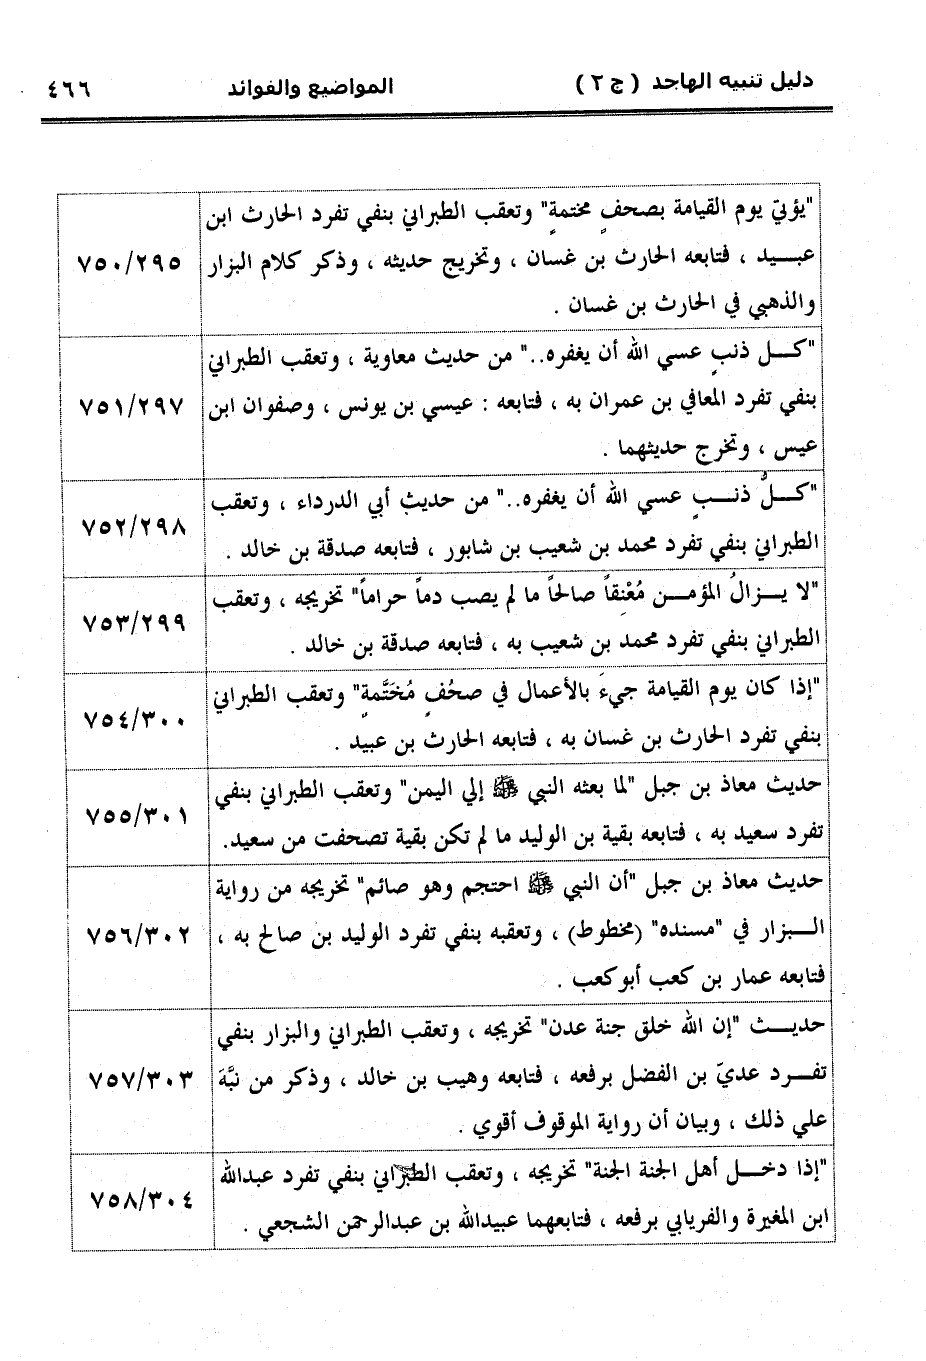 دليل تنبيه الهاجد ( ج ٢ ) المواضيع والفوائد ٤٦٦
"يؤتي يوم القيامة بصحفٍ مختمةٍ" وتعقب الطبراني بنفي تفرد الحارث ابن
عبـــيد ، فتابعه الحارث بن غسان ، وتخريج حديثه ، وذكر كلام البزار
والذهبي في الحارث بن غسان .
٧٥٠/٢٩٥
"كـــل ذنبٍ عسي الله أن يغفره.." من حديث معاوية ، وتعقب الطبراني
بنفي تفرد المعافي بن عمران به ، فتابعه : عيسي بن يونس ، وصفوان ابن
عيس ، وتخرج حديثهما .
٧٥١/٢٩٧
"كـــلُّ ذنـــبٍ عسي الله أن يغفره.." من حديث أبي الدرداء ، وتعقب
الطبراني بنفي تفرد محمد بن شعيب بن شابور ، فتابعه صدقة بن خالد .
٧٥٢/٢٩٨
"لا يـــزالُ المؤمـــن مُعْنِقاً صالحًا ما لم يصب دماً حراماً" تخريجه ، وتعقب
الطبراني بنفي تفرد محمد بن شعيب به ، فتابعه صدقة بن خالد .
٧٥٣/٢٩٩
"إذا كان يوم القيامة جيءَ بالأعمال في صحُفٍ مُخَتَّمةٍ" وتعقب الطبراني
بنفي تفرد الحارث بن غسان به ، فتابعه الحارث بن عبيد .
٧٥٤/٣٠٠
حديث معاذ بن جبل "لما بعثه النبي ﷺ إلي اليمن" وتعقب الطبراني بنفي
تفرد سعيد به ، فتابعه بقية بن الوليد ما لم تكن بقية تصحفت من سعيد.
٧٥٥/٣٠١
حديث معاذ بن جبل "أن النبي ﷺ احتجم وهو صائم" تخريجه من رواية
الـــبزار في "مسنده" (مخطوط) ، وتعقبه بنفي تفرد الوليد بن صالح به ،
فتابعه عمار بن كعب أبوكعب .
٧٥٦/٣٠٢
حديـــث "إن الله خلق جنة عدن" تخريجه ، وتعقب الطبراني والبزار بنفي
تفـــرد عديّ بن الفضل برفعه ، فتابعه وهيب بن خالد ، وذكر من نبَّهَ
علي ذلك ، وبيان أن رواية الموقوف أقوي .
٧٥٧/٣٠٣
"إذا دخـــل أهل الجنة الجنة" تخريجه ، وتعقب الطبراني بنفي تفرد عبدالله
ابن المغيرة والفريابي برفعه ، فتابعهما عبيدالله بن عبدالرحمن الشجعي .
٧٥٨/٣٠٤